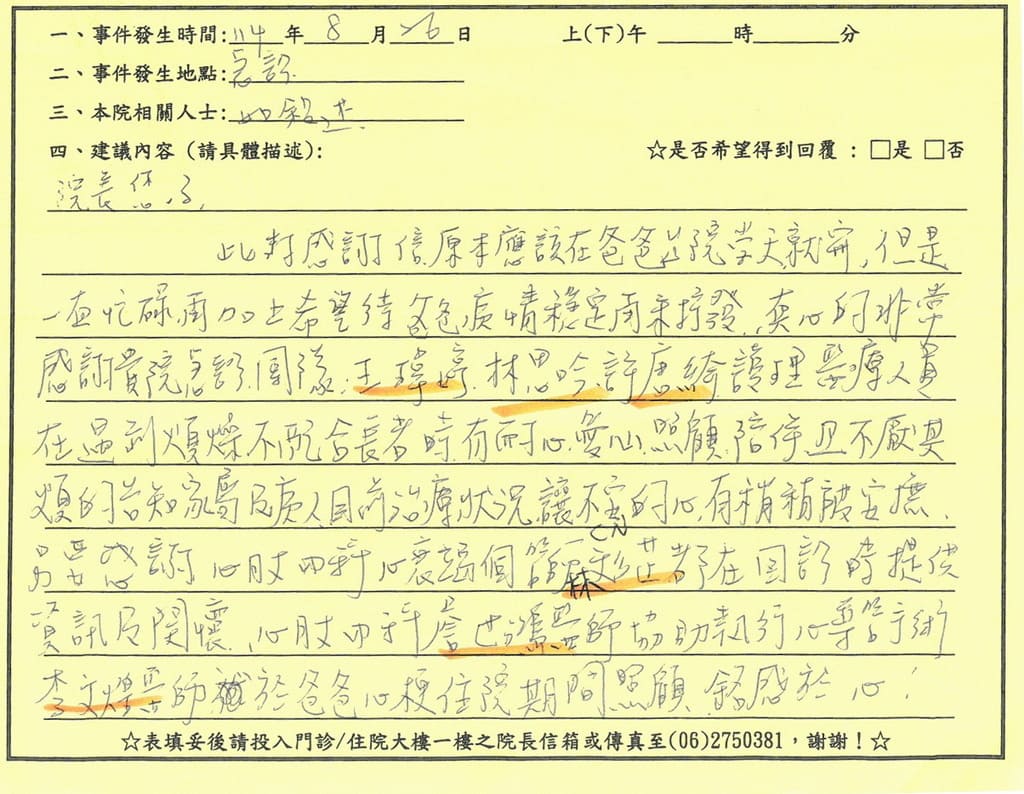 一、事件發生時間:114年8月26日 上(下)午 時 分
二、事件發生地點:急診
三、本院相關人士:如敘述
四、建議內容(請具體描述): ☆是否希望得到回覆:□是 □否
院長您好,
此封感謝信原本應該在爸爸出院當天就寄,但是
一直忙碌再加上希望待爸爸病情穩定再來抒發,真心的非常
感謝貴院急診團隊:王瑋婷.林思吟.許庭綺護理醫療人員
在遇到煩燥不配合長者時,有耐心.愛心.照顧.陪伴.且不厭其
煩的告知家屬及病人目前治療狀況讓不安的心,有稍稍被安撫.
另要感謝心臟內科心衰竭個管師林彩芷CN都在回診時提供
資訊及關懷.心臟內科詹世鴻醫師協助執行心導管手術
李文煌醫師於爸爸心梗住院期間照顧.銘感於心!
☆表填妥後請投入門診/住院大樓一樓之院長信箱或傳真至(06)2750381,謝謝!☆